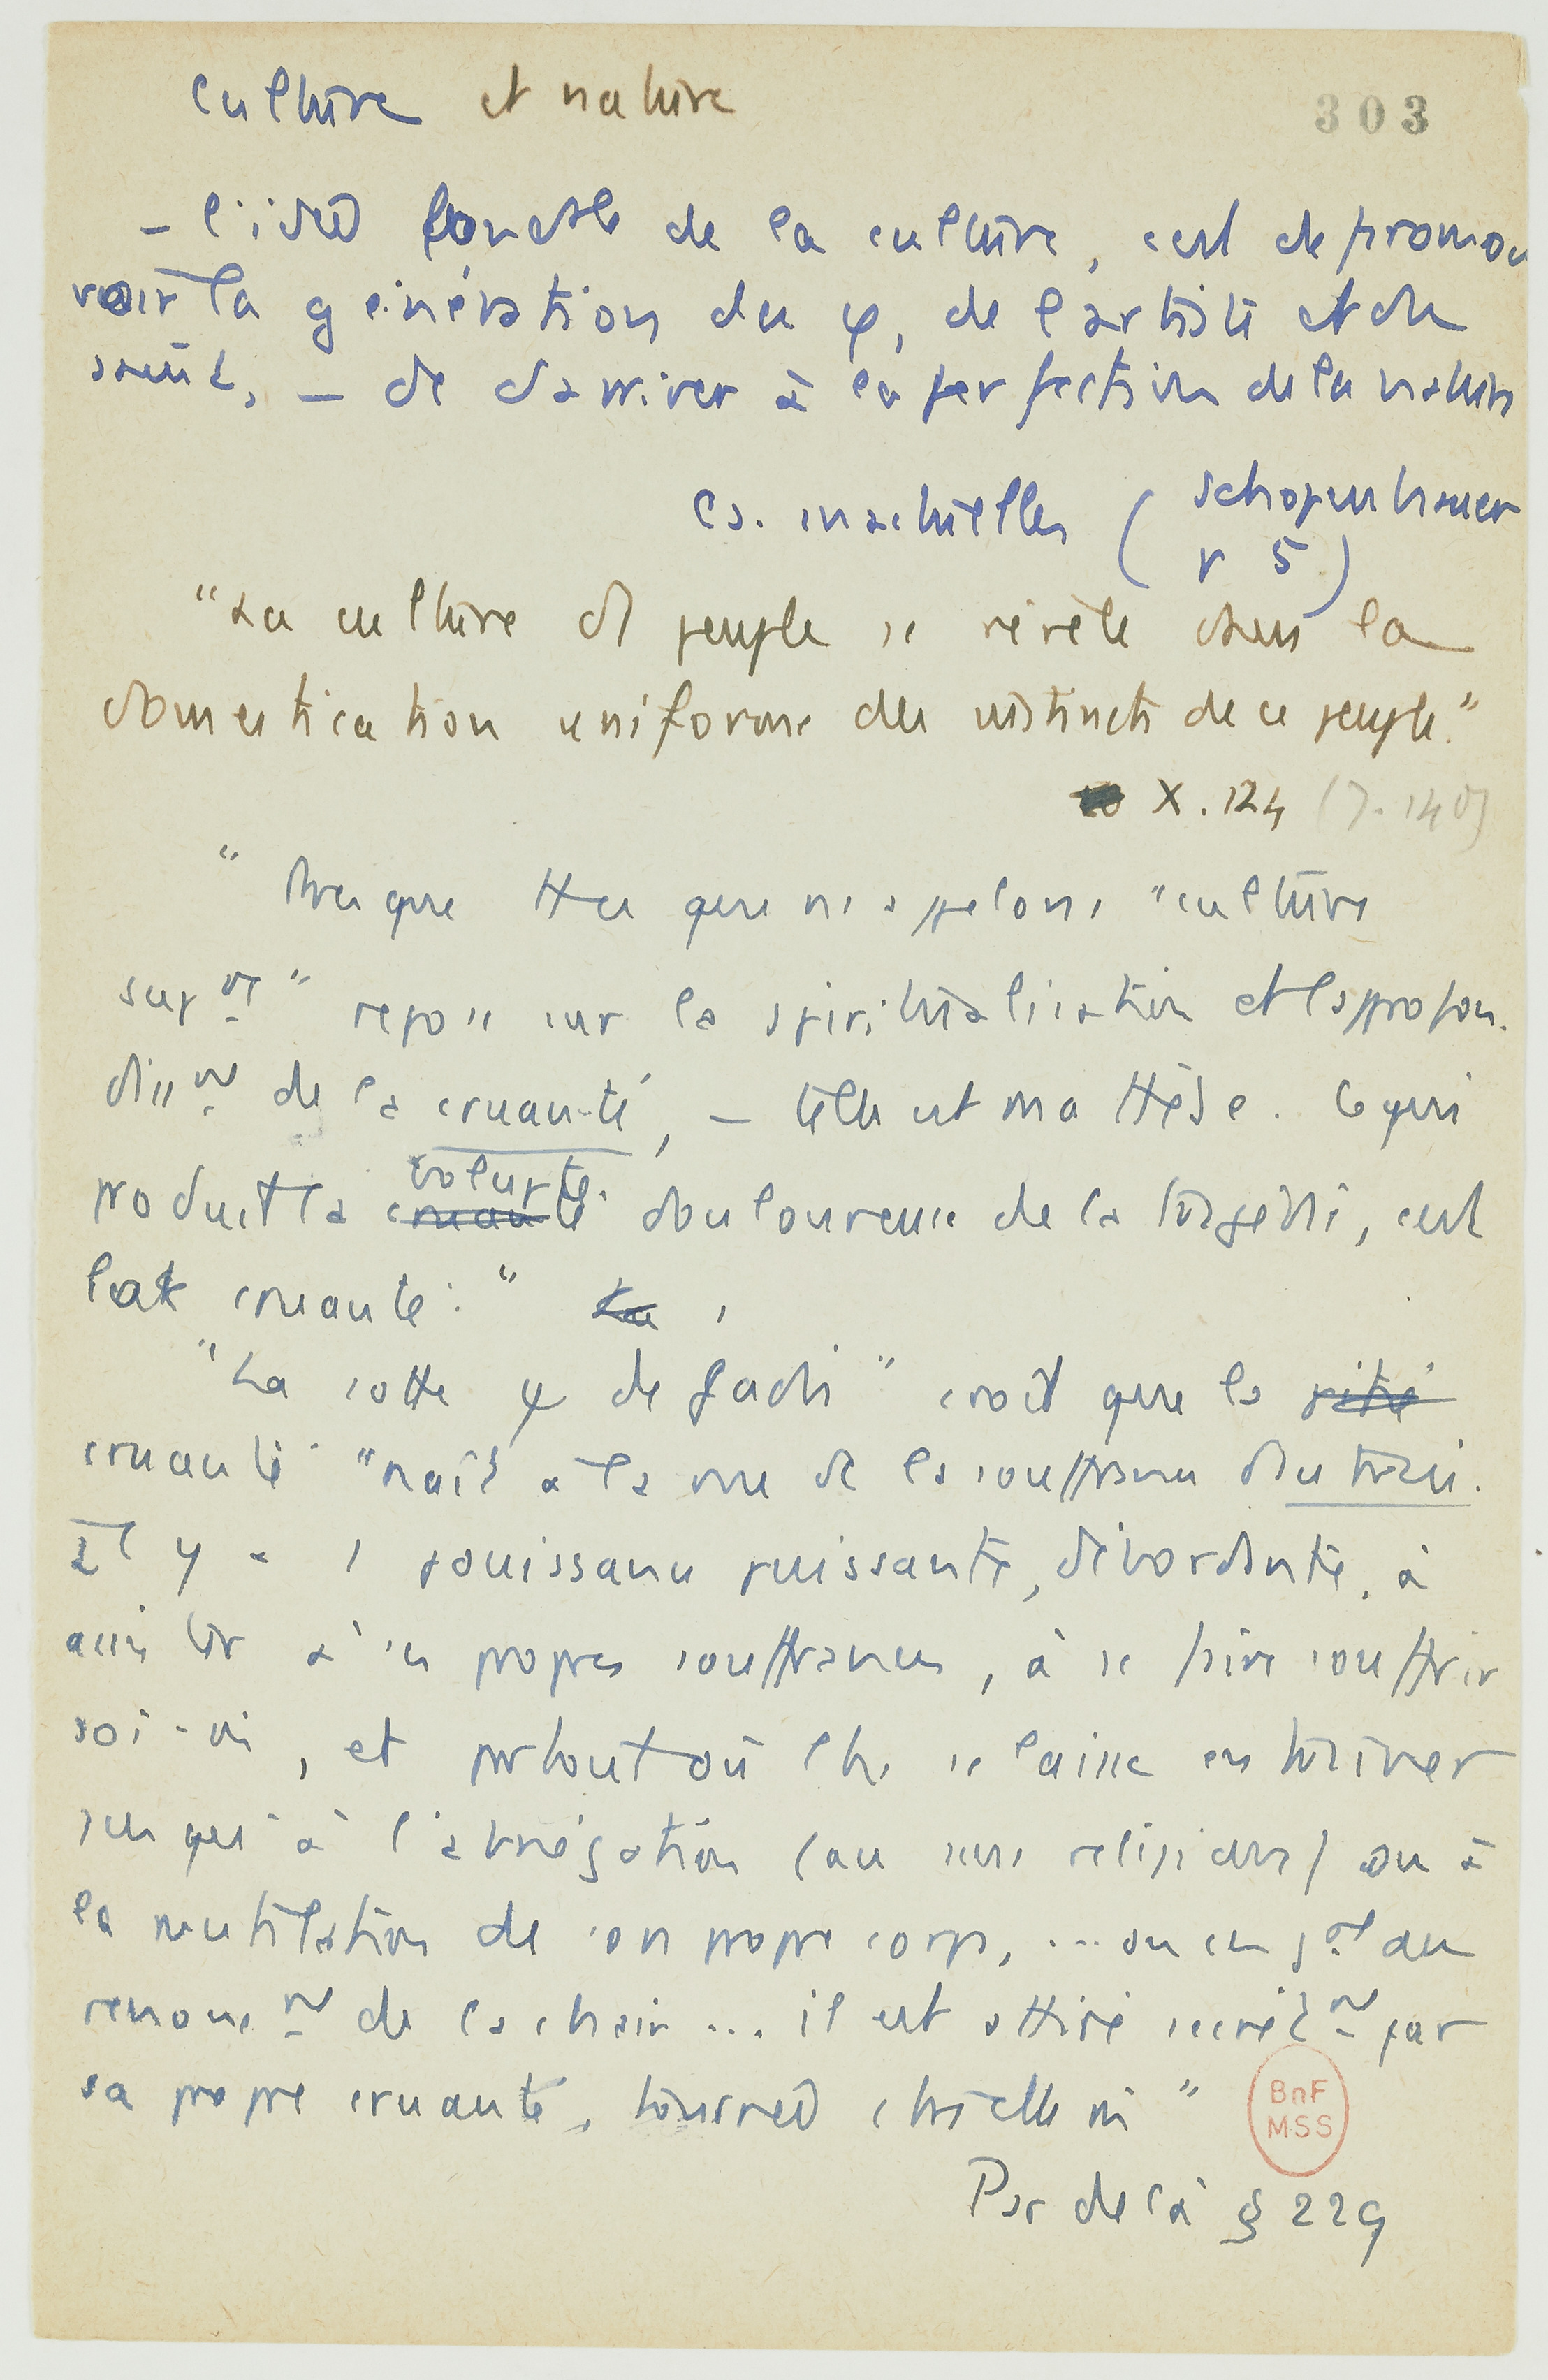 Culture et nature
303
– l'idée fondtle de la culture, c'est de promou
voir la génération du φ, de l'artiste et du
saint, – de d'arriver à la perfection de la nature
Cs. inactuelles (Schopenhauer
5)
"La culture d' peuple se révèle dans la
domestication uniforme des instincts de ce peuple."
X. 124
" Presque tt ce que ns appelons "culture
supre" repose sur la spiritualisation et l'approfon-
disst de la cruauté, – telle est ma thèse. Ce qui
volupté
produit la cruauté douloureuse de la tragédie, c'est
la cruauté." La
"La sotte ψ de jadis" croit que la pitié
cruauté "naît à la vue de la souffrance d'autrui.
Il y a 1 jouissance puissante, débordante, à
assister à ses propres souffrances, à se faire souffrir
soi-m, et partout où l'h. se laisse entraîner
jusqu'à l'abnégation (au sens religieux) ou à
la mutilation de son propre corps, ... ou en gal au
renonct de la chair ... il est attiré secrètt par
sa propre cruauté, tournée contre elle m"
BnF
MSS
Par delà § 229